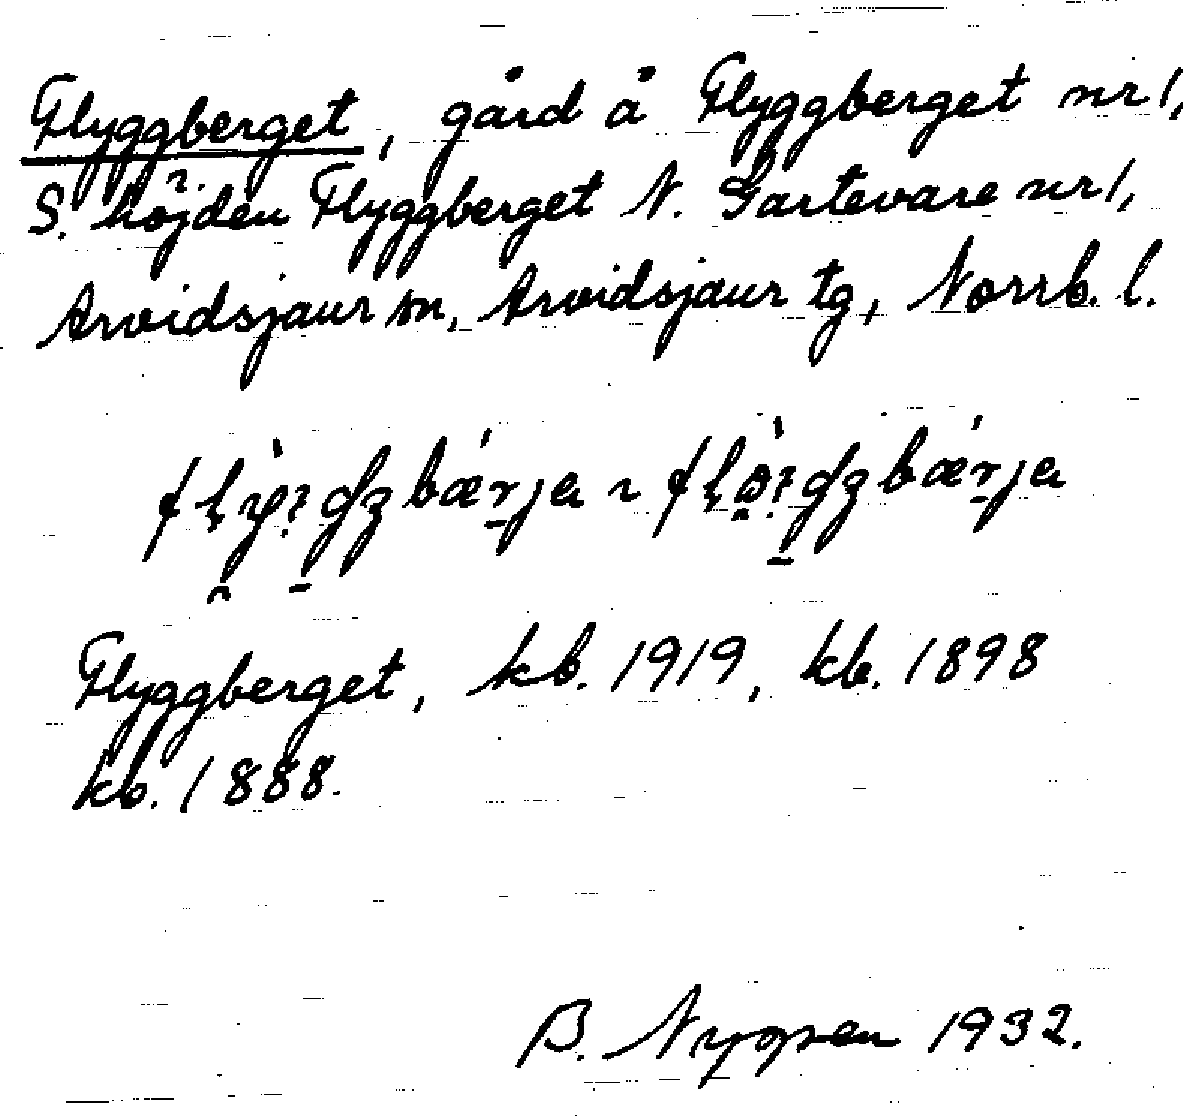 Flyggberget, gård å Flyggberget nr 1,
S. höjden Flyggberget N. Gartevare nr 1,
Arvidsjaur sn, Arvidsjaur tg, Norrb. l.
Flyggberget, kb. 1919, kb. 1898
kb. 1888.
B. Nygren 1932.